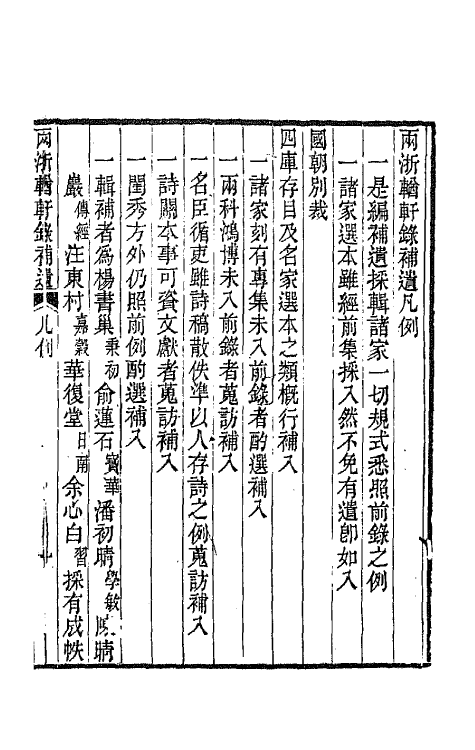 兩浙輶軒錄補遺凡例
一是編補遺採輯諸家一切規式悉照前錄之例
一諸家選本雖經前集採入然不免有遺卽如入
國朝別裁
四庫存目及名家選本之類槪行補入
一諸家刻有專集未入前錄者酌選補入
一兩科鴻博未入前錄者蒐訪補入
一名臣循吏雖詩稿散佚準以人存詩之例蒐訪補入
一詩關本事可資文獻者蒐訪補入
一閨秀方外仍照前例酌選補入
一輯補者爲楊書巢秉初俞蓮石寶華潘初晴學敏陳晴
巖傳經汪東村嘉穀華復堂日南余心白習採有成帙
兩浙輶軒錄補遺 凡例